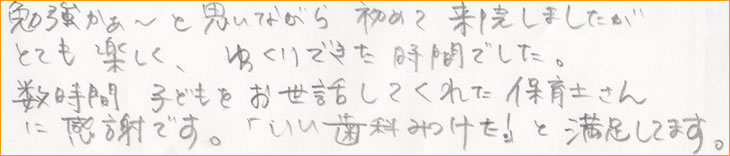 勉強かぁ～と思いながら 初めて 来院しましたが
とても 楽しく、 ゆっくりできた 時間でした。
数時間 子どもを お世話してくれた 保育士さん
に 感謝です。「いい歯科みつけた!」と 満足してます。